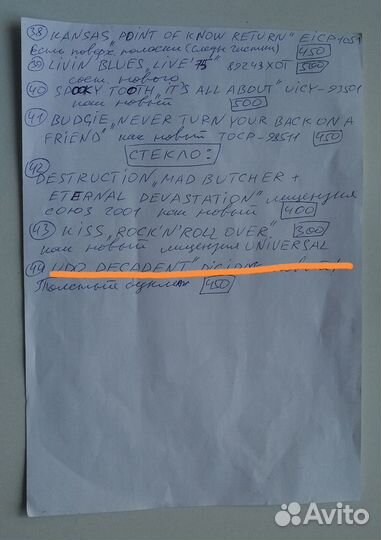 38 KANSAS „POINT OF KNOW RETURN" EICP 1051
Есть поверх. полоски (следы чистки) 450
39 LIVIN' BLUES „LIVE '75" 89243XOT 500
сост. нового
40 SPOOKY TOOTH „IT'S ALL ABOUT" UICY-93501
как новый 500
41 BUDGIE „NEVER TURN YOUR BACK ON A
FRIEND" как новый TOCP-98511 450
СТЕКЛО:
42
DESTRUCTION „MAD BUTCHER +
ETERNAL DEVASTATION" лицензия
СОЮЗ 2001 как новый 400
43 KISS „ROCK'N'ROLL OVER" 300
как новый лицензия UNIVERSAL
44 UDO „DECADENT"
Толстый буклет 450
Avito